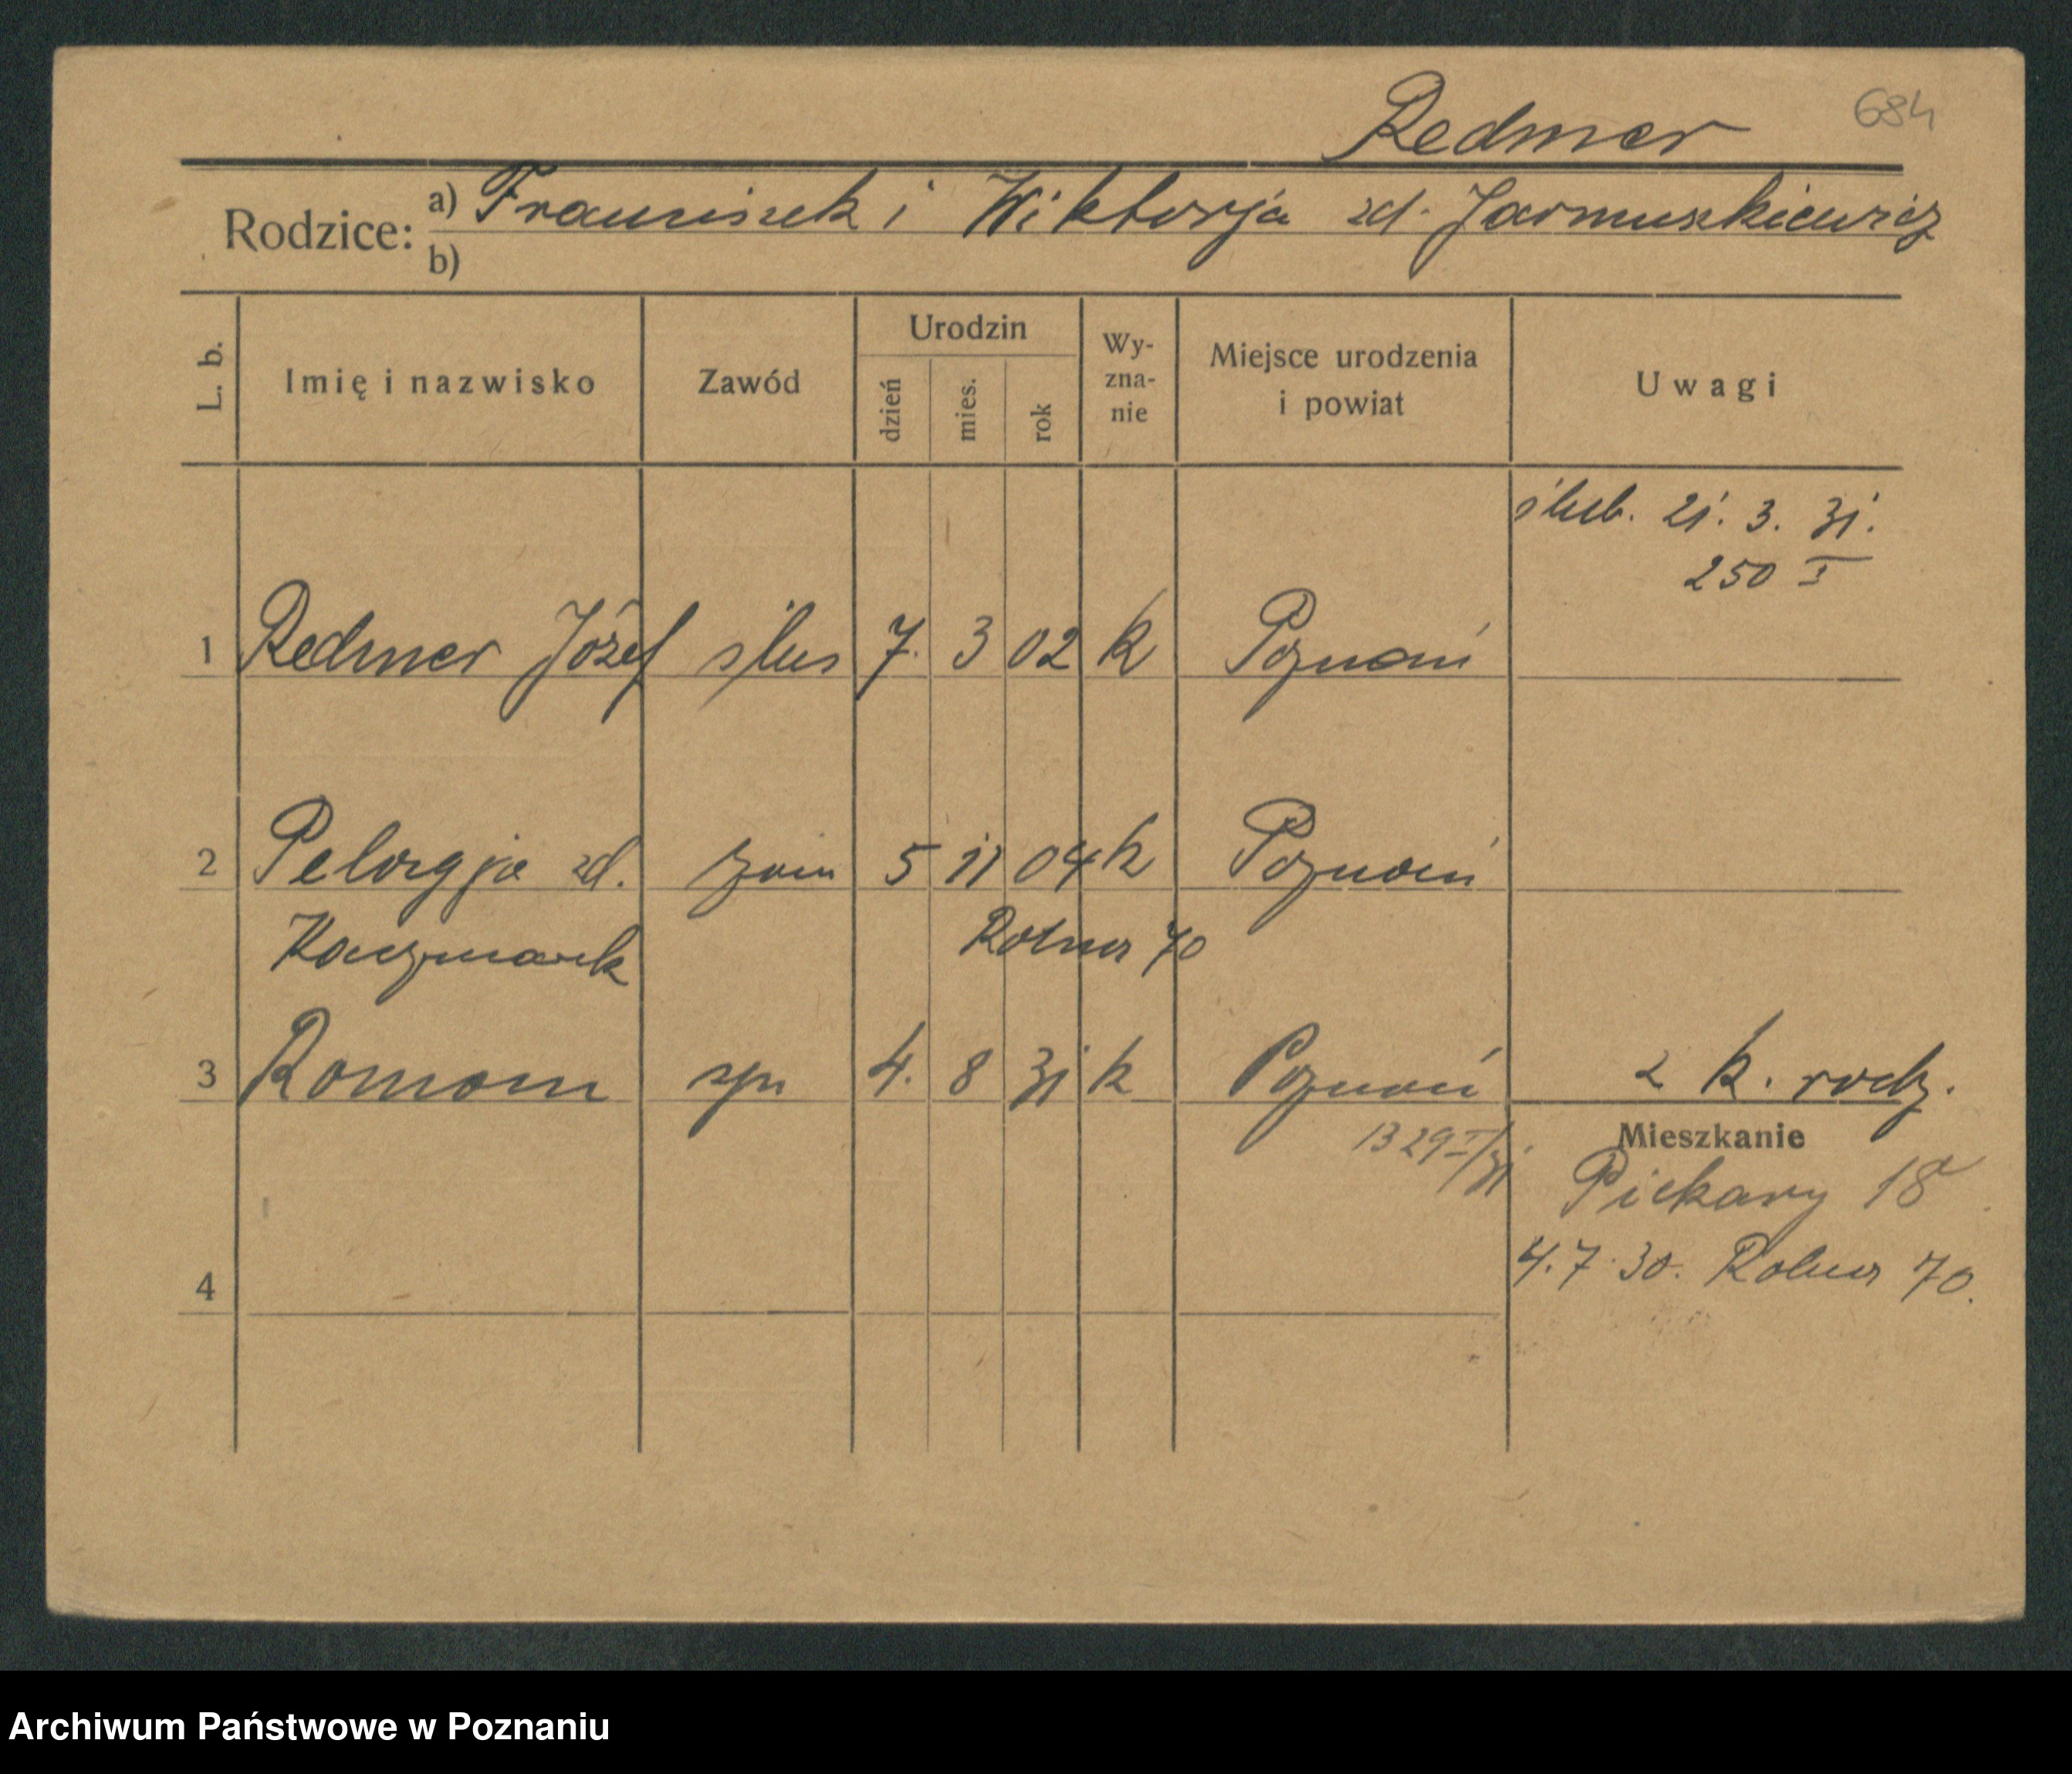 Redmer 684
Rodzice: a) Franciszek i Wiktorja zd. Jarmuszkiewicz
b)
L. b. Imię i nazwisko Zawód Urodzin dzień mies. rok Wy-zna-nie Miejsce urodzenia i powiat Uwagi
ślub. 21. 3. 31.
250 I
1 Redmer Józef ślus 7. 3 02 k Poznań
2 Pelagja zd. żoin 5 11 04 k Poznań
Kaczmarek Rolna 70
3 Roman syn 4. 8 31 k Poznań 2 k. rodz.
1329 I/31 Mieszkanie
Piekary 18
4 4.7.30. Rolna 70.
Archiwum Państwowe w Poznaniu